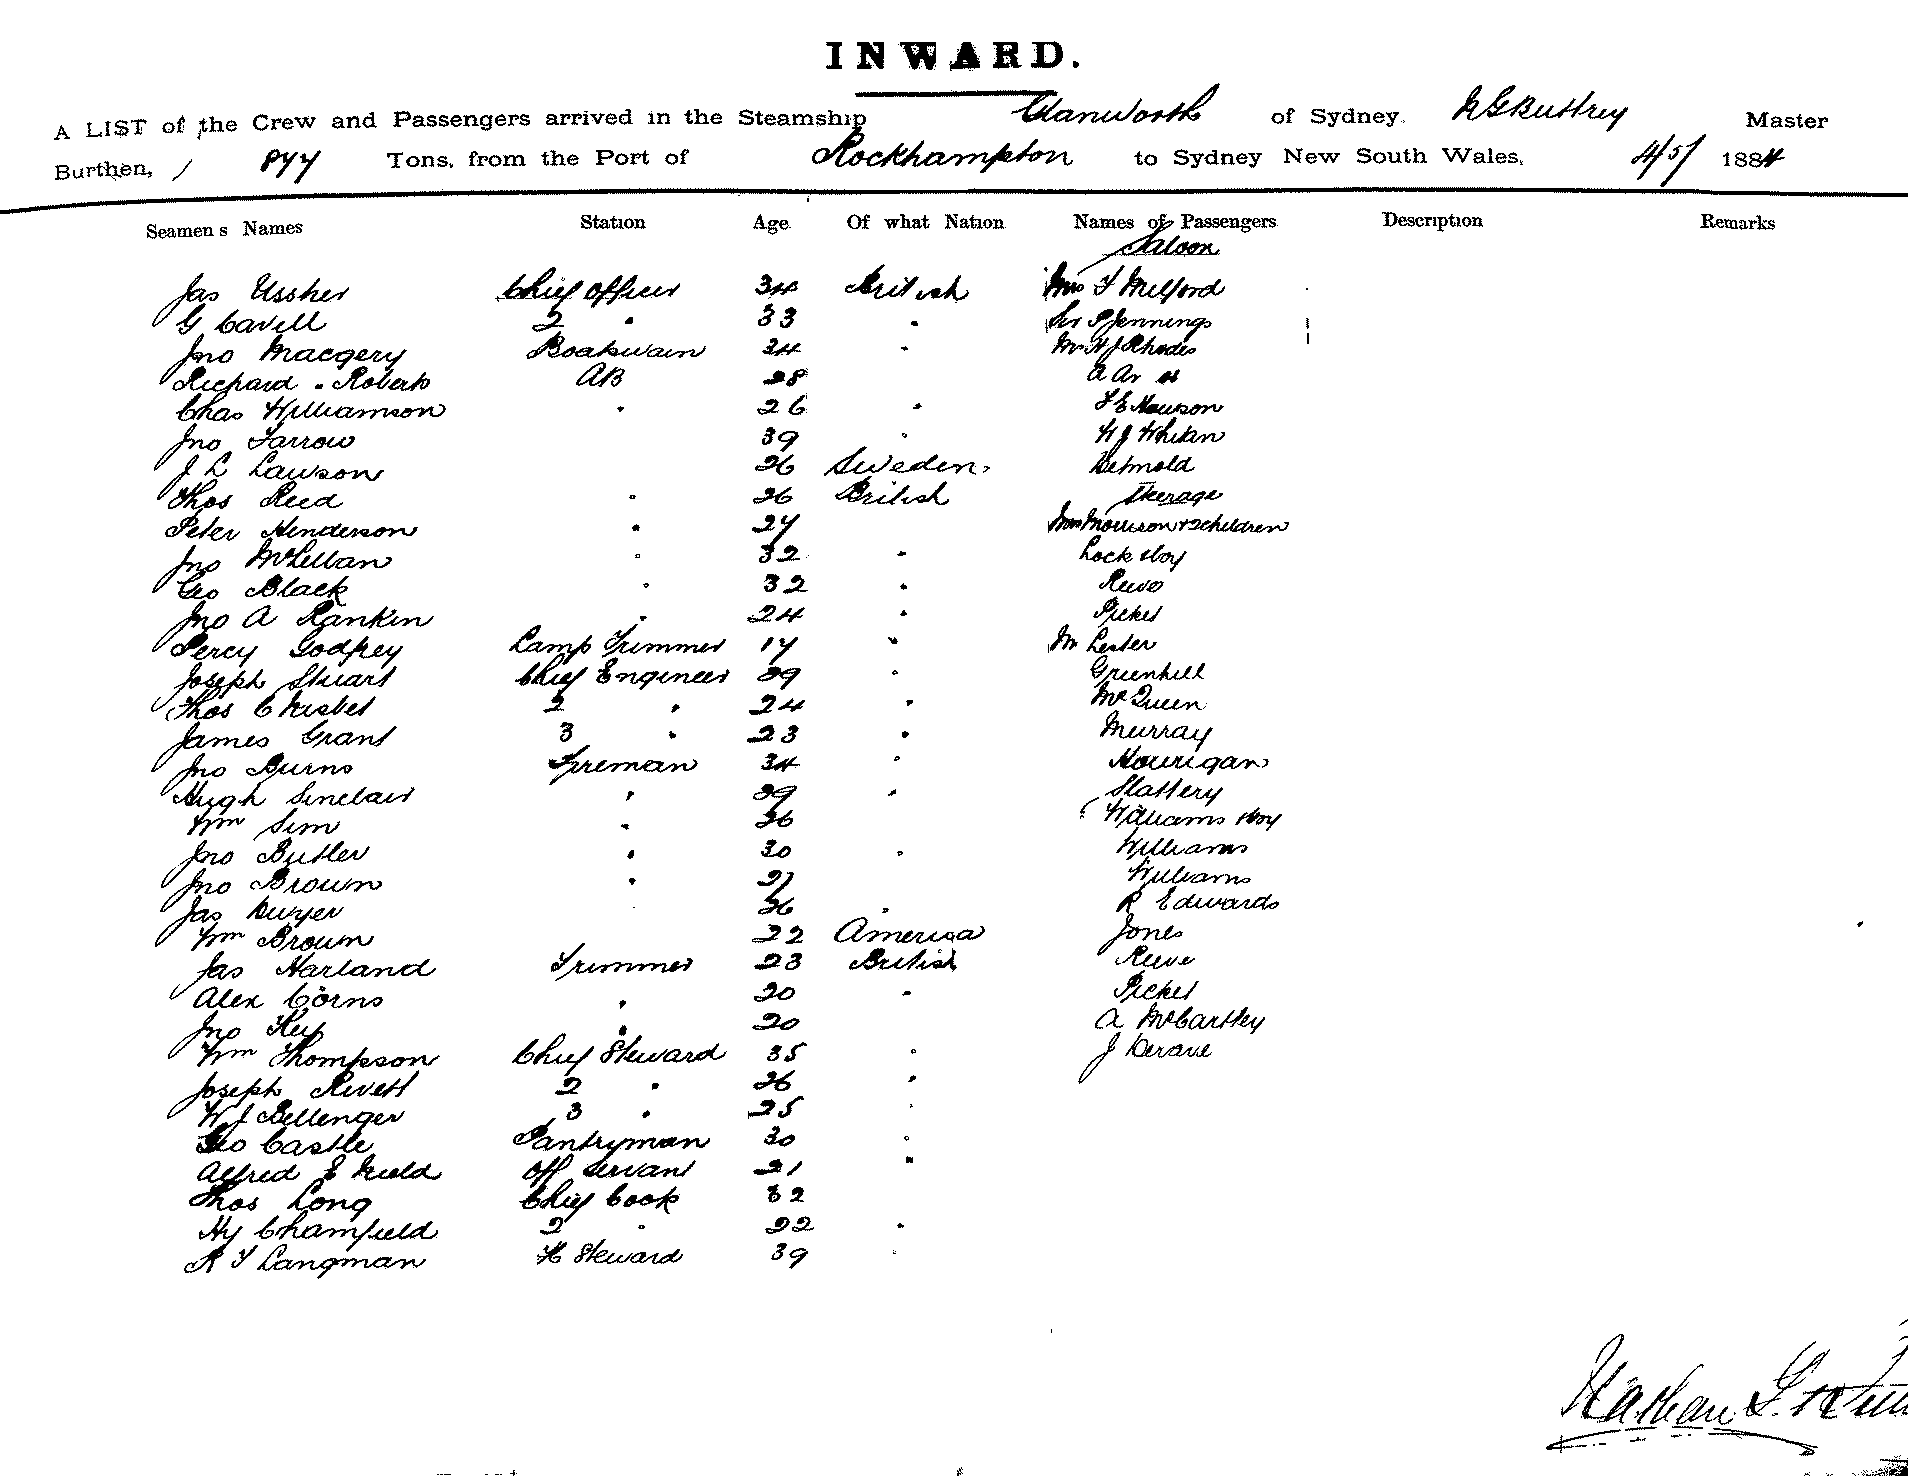 INWARD.
A LIST of the Crew and Passengers arrived in the Steamship Glanworth of Sydney. N G Buttrey Master
Burthen, 877 Tons, from the Port of Rockhampton to Sydney New South Wales, 4/5/ 1884
Seamens Names Station Age Of what Nation Names of Passengers Description Remarks
Saloon
Jas Ussher Chief Officer 34 British Mrs F Milford
G Cavill 2 " 33 " Sir P Jennings
Jno Macgery Boatswain 34 " Mr H J Rhodes
Richard Roberts AB 28
Chas Williamson " 26 " F E Hewson
Jno Farrow 39 " W J
J L Lawson 26 Sweden. Detmold
Thos Reed " 26 British Steerage
Peter Henderson " 27 Mrs Morrison & 2 children
Jno McLellan " 32 " Lock Hoy
Geo Black " 32 "
Jno A Rankin " 24 " Picket
Percy Godfrey Lamp Trimmer 17 " Mr Lester
Joseph Stuart Chief Engineer 39 " Greenhill
Thos C Nisbet 2 " 24 " McQueen
James Grant 3 " 23 " Murray
Jno Burns Fireman 34 " Hourigan
Hugh Sinclair " 39 " Slattery
Wm Sim " 26 Williams
Jno Butler " 30 " Williams
Jno Brown " 27 Williams
Jas Dwyer 26 " R Edwards
Wm Brown 22 America Jones
Jas Harland Trimmer 23 British Reeve
Alex Corns " 20 " Picket
Jno Key " 20 A McCartley
Wm Thompson Chief Steward 35 " J
Joseph Rivett 2 " 26 "
W J Bellenger 3 " 25 "
Geo Castle Pantryman 30 "
Alfred E Nield Off Servant 21 "
Thos Long Chief Cook 32
Hy Chamfield 2 " 22 "
R F Langman F Steward 39 "
Nathan G.